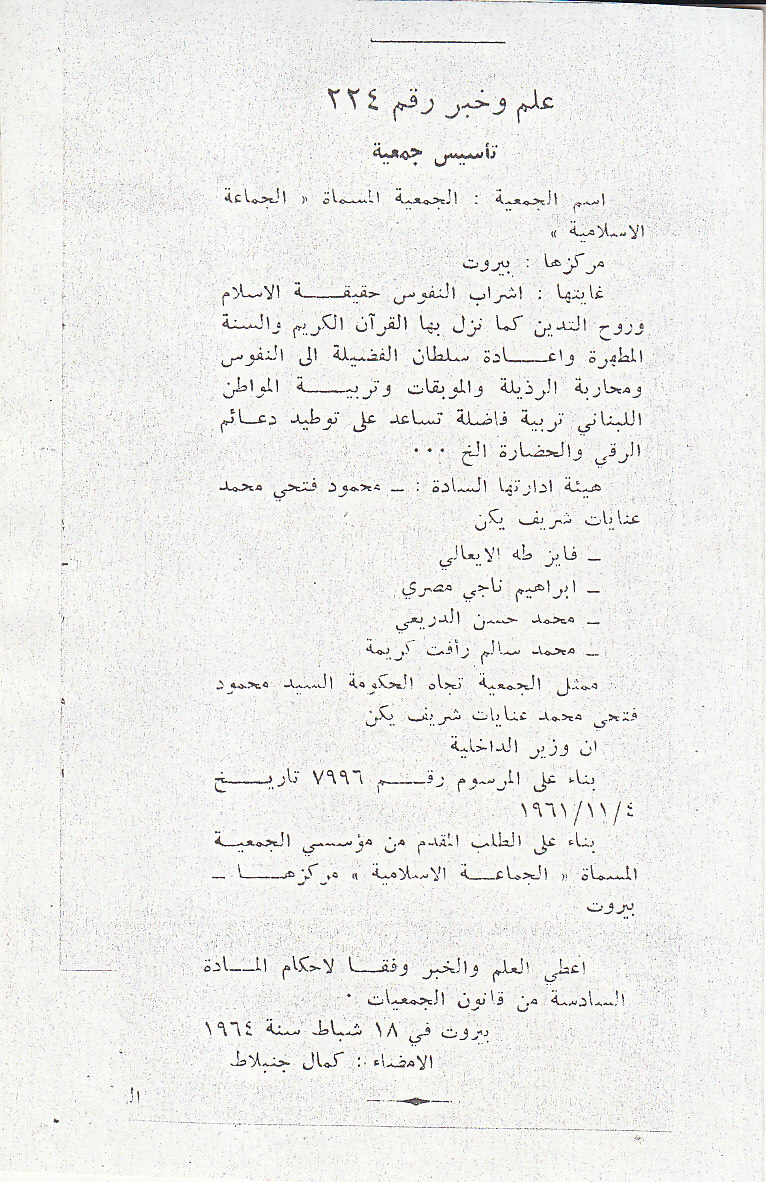 علم وخبر رقم ٢٢٤
تأسيس جمعية
اسم الجمعية : الجمعية المسماة « الجماعة
الاسلامية »
مركزها : بيروت
غايتها : اشراب النفوس حقيقـــة الاسلام
وروح التدين كما نزل بها القرآن الكريم والسنة
المطهرة واعـــادة سلطان الفضيلة الى النفوس
ومحاربة الرذيلة والموبقات وتربيـــة المواطن
اللبناني تربية فاضلة تساعد على توطيد دعـائم
الرقي والحضارة الخ ...
هيئة ادارتها السادة : ــ محمود فتحي محمد
عنايات شريف يكن
ــ فايز طه الايعالي
ــ ابراهيم ناجي مصري
ــ محمد حسن الدريعي
ــ محمد سالم رأفت كريمة
ممثل الجمعية تجاه الحكومة السيد محمود
فتحي محمد عنايات شريف يكن
ان وزير الداخلية
بناء على المرسوم رقـــم ٧٩٩٦ تاريـــخ
١٩٦١/١١/٤
بناء على الطلب المقدم من مؤسسي الجمعيـة
المسماة « الجماعـــة الاسلامية » مركزهـــا ــ
بيروت
اعطي العلم والخبر وفقـــا لاحكام المـــادة
السادسة من قانون الجمعيات .
بيروت في ١٨ شباط سنة ١٩٦٤
الامضاء : كمال جنبلاط
ال